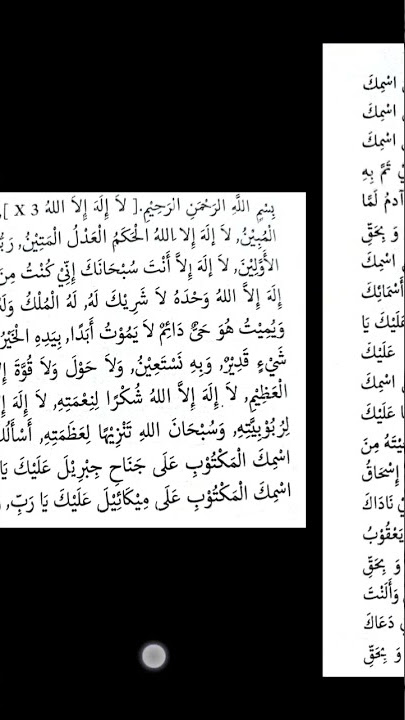 بِسْمِ اللَّهِ الرَّحْمَنِ الرَّحِيْمِ.[ لاَ إِلَهَ إِلاَ اللهُ X 3 ],
الْمُبِيْنُ, لاَ إِلَهَ إِلاَ.اللهُ الْحَكَمُ الْعَدْلُ الْمَتِيْنُ, رَبُّ
الأَوَّلِيْنَ, لاَ إِلَهَ إِلاَّ أَنْتَ سُبْحَانَكَ إِنِّيْ كُنْتُ مِنَ
إِلَهَ إِلاَّ اللهُ وَحْدَهُ لاَ شَرِيْكَ لَهُ, لَهُ الْمُلْكُ وَلَهُ
وَيُمِيْتُ هُوَ حَيٌّ دَائِمٌ لاَ يَمُوْتُ أَبَدًا, بِيَدِهِ الْخَيْرُ
شَيْءٍ قَدِيْرٌ, وَبِهِ نَسْتَعِيْنُ, وَلاَ حَوْلَ وَلاَ قُوَّةَ
الْعَظِيْمِ, لاَ إِلَهَ إِلاَّ اللهُ شُكْرًا لِنِعْمَتِهِ, لاَ إِلَهَ
لِرُبُوْبِيَّتِهِ, وَسُبْحَانَ اللهِ تَنْزِيْهًا لِعَظَمَتِهِ, أَسْأَلُكَ
اسْمِكَ الْمَكْتُوْبِ عَلَى جَنَاحِ جِبْرِيْلَ عَلَيْكَ يَا
اسْمِكَ الْمَكْتُوْبِ عَلَى مِيْكَائِيْلَ عَلَيْكَ يَا رَبِّ,
اسْمِكَ
اسْمِكَ
اسْمِكَ
تَمَّ بِهِ
آدَمُ لَمَّا
وَ بِحَقِّ
اسْمِكَ
أَسْمَائِكَ
عَلَيْكَ يَا
عَلَيْكَ
اسْمِكَ
عَلَيْكَ
مِنَ
إِسْحَاقُ
نَادَاكَ
يَعْقُوْبُ
وَ بِحَقِّ
وَأَلَنْتَ
دَعَاكَ
وَ بِحَقِّ